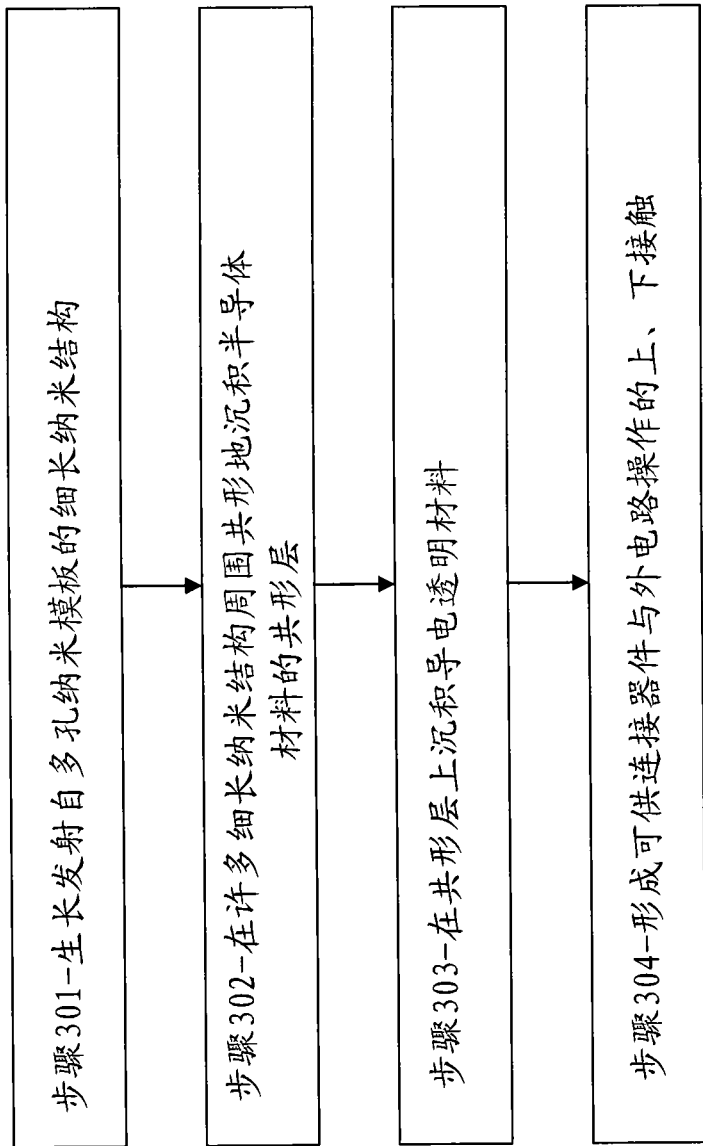 步骤301-生长发射自多孔纳米模板的细长纳米结构
步骤302-在许多细长纳米结构周围共形地沉积半导体
材料的共形层
步骤303-在共形层上沉积导电透明材料
步骤304-形成可供连接器件与外电路操作的上、下接触